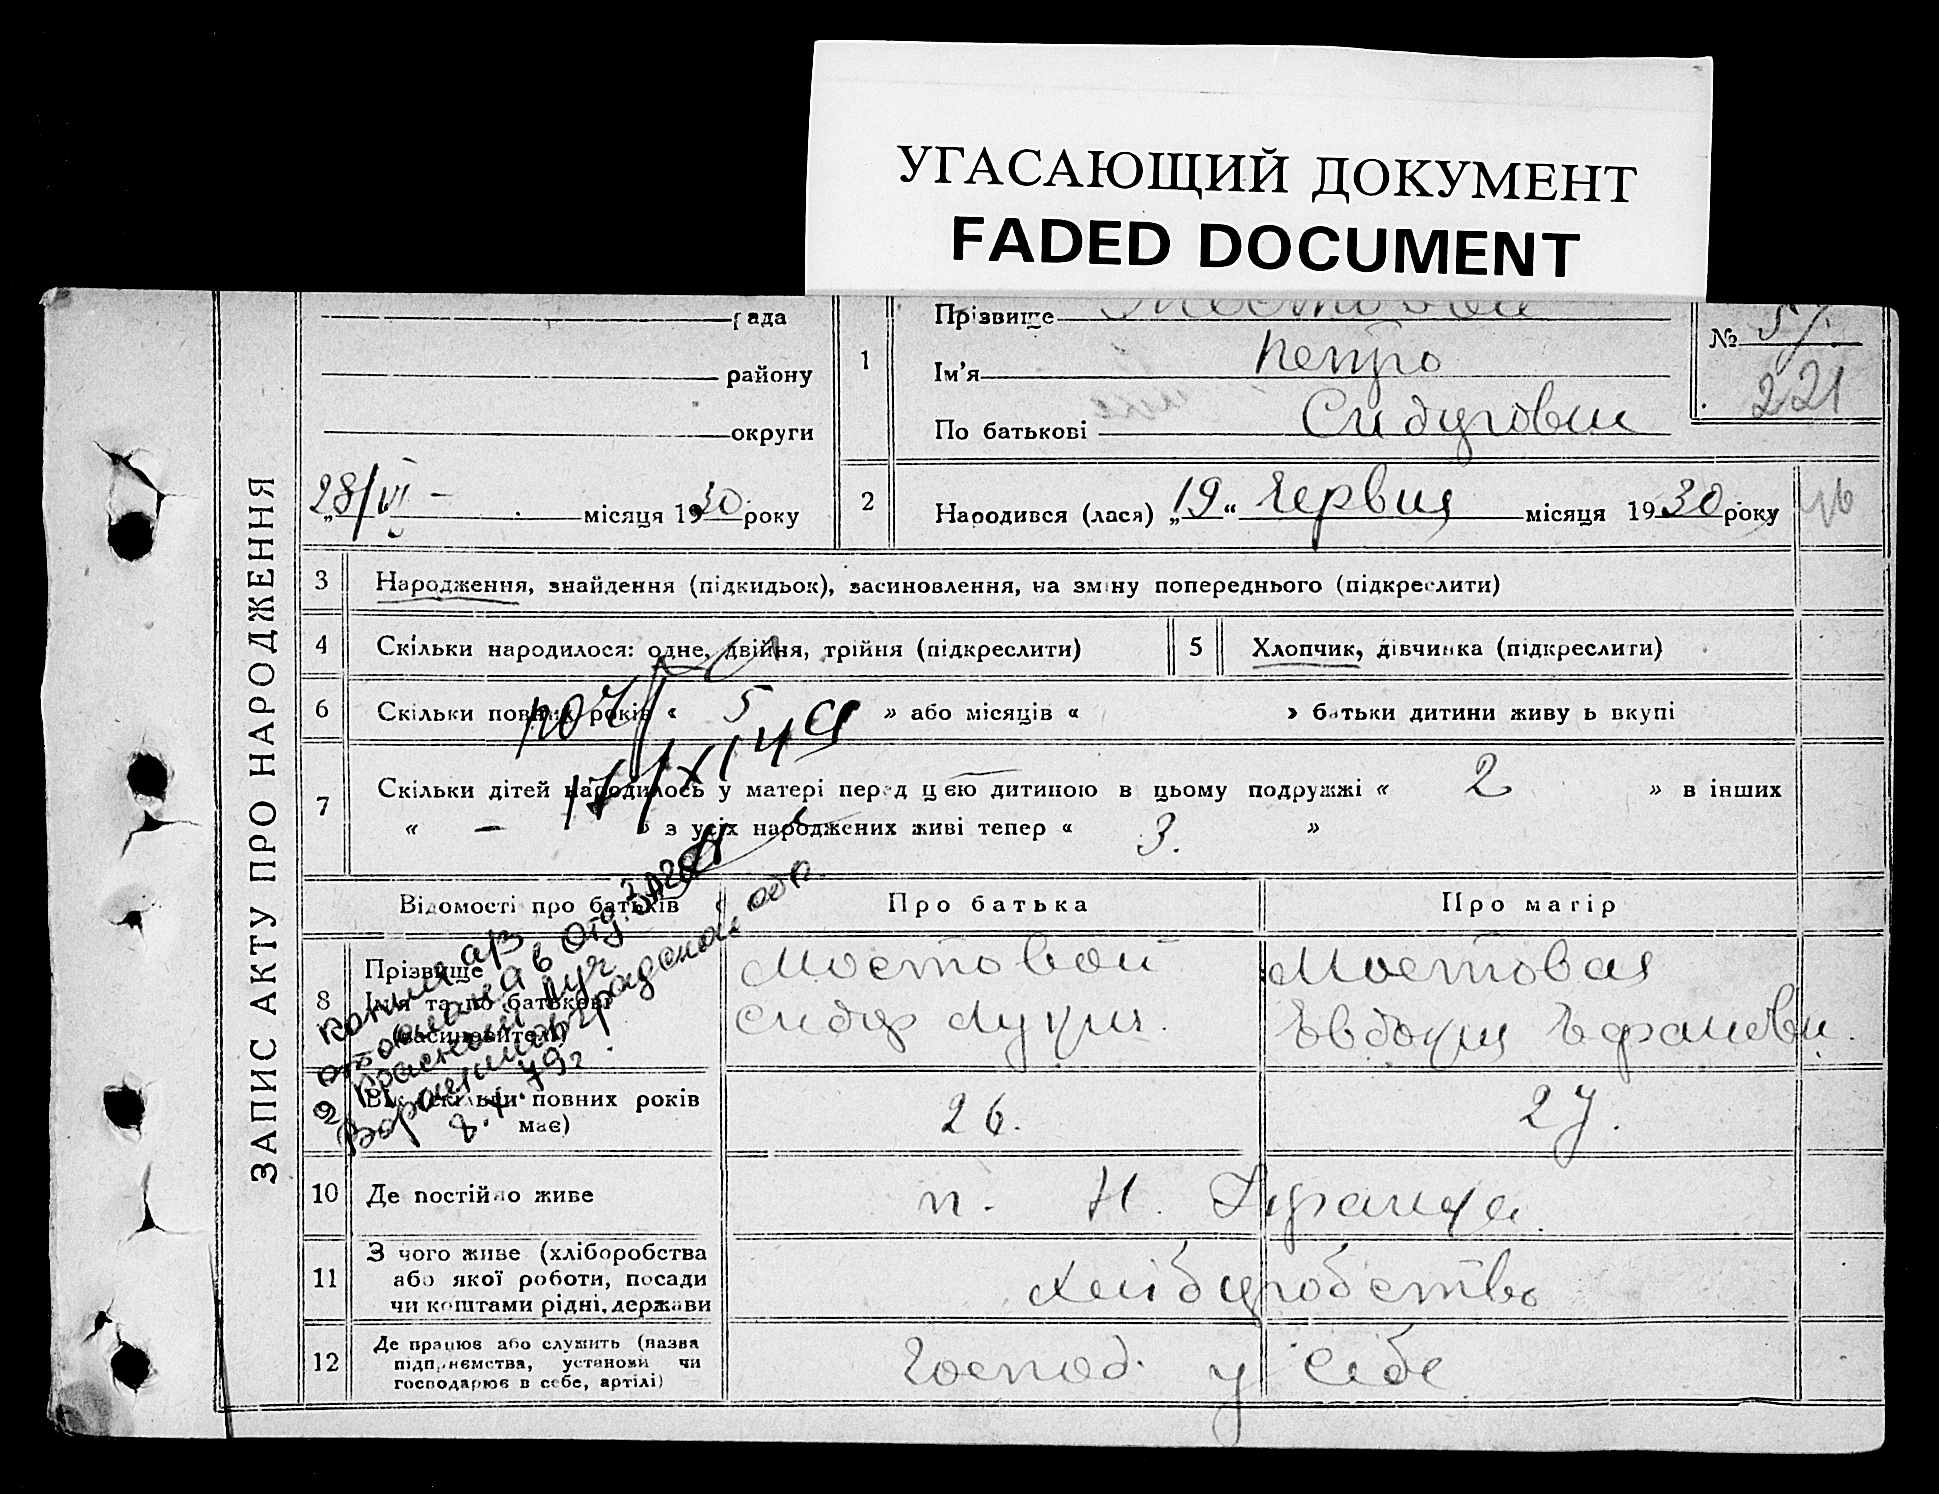 УГАСАЮЩИЙ ДОКУМЕНТ
FADED DOCUMENT
ЗАПИС АКТУ ПРО НАРОДЖЕННЯ
рада
району
округи
28/VI – місяця 1930 року
1
Прізвище
Ім'я Петро
По батькові Сидорович
№ 57.
221
2 Народився (лася) „19“ Червня місяця 1930 року
16
3 Народження, знайдення (підкидьок), засиновлення, на зміну попереднього (підкреслити)
4 Скільки народилося: одне, двійня, трійня (підкреслити)
5 Хлопчик, дівчинка (підкреслити)
6 Скільки повних років « 5 » або місяців « » батьки дитини живуть вкупі
17/XI 49
7 Скільки дітей народилось у матері перед цією дитиною в цьому подружжі « 2 » в інших
« – » з усіх народжених живі тепер « 3. »
Відомості про батьків Про батька Про матір
8 Прізвище
Ім'я та по батькові
(засиновителя)
Мостовой
Сидор Лукич.
Мостовая
Евдокия Ефимовн.
Копия а/з
отослана в Отд. Загс
г Красный Луч
Ворошиловградской обл.
8. X. 79 г.
9 Вік (скільки повних років
має)
26. 27.
10 Де постійно живе
п. Н.
11 З чого живе (хліборобства
або якої роботи, посади
чи коштами рідні, держави
хліборобство
12 Де працює або служить (назва
підприємства, установи чи
господарює в себе, артілі)
Господ. у себе